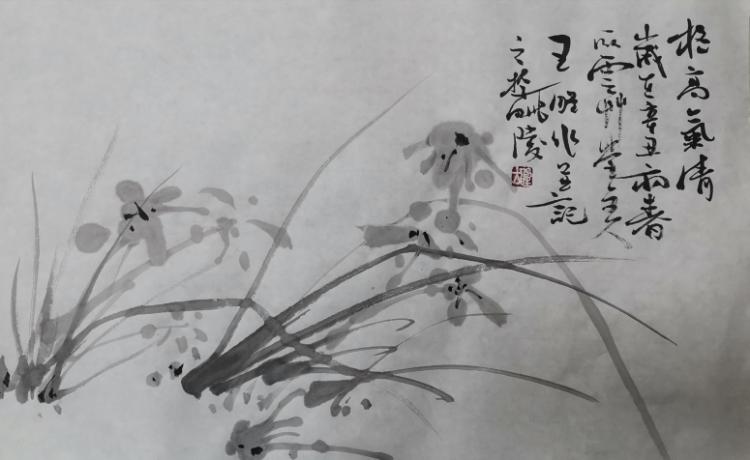 格高氣清
歲在辛丑初春
雲艸堂主人
王作並記
之於陵